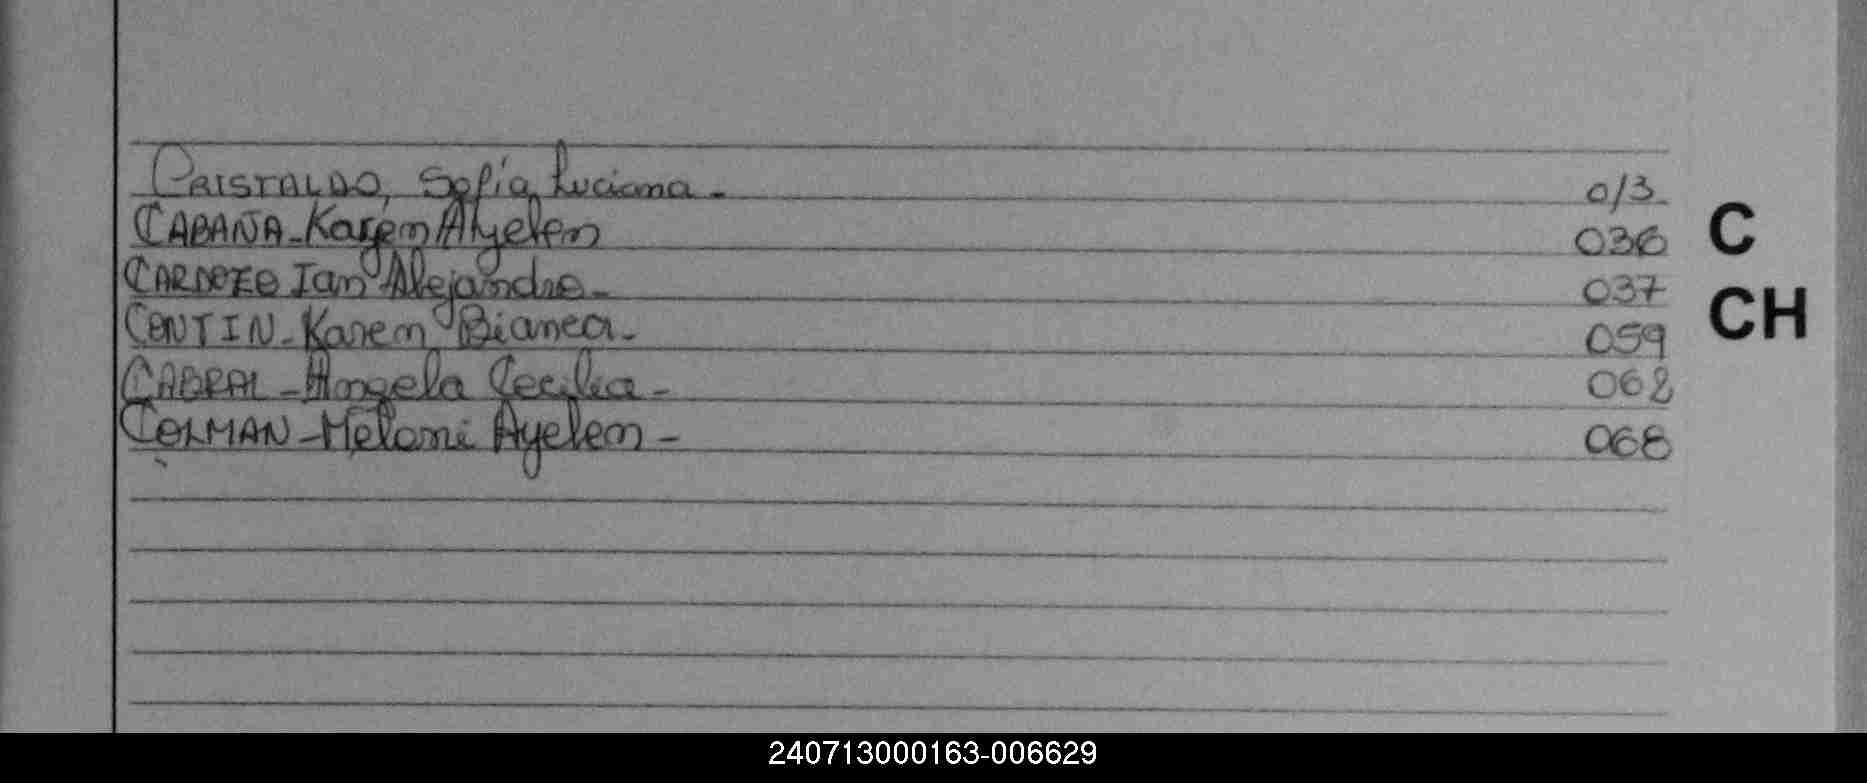 CRISTALDO, Sofía Luciana - 013
CABAÑA - Karen Ayelen 036
C
CARDOZO Ian Alejandro - 037
CH
CONTIN - Karen Bianca - 059
CABRAL - Angela Cecilia - 062
COLMAN - Melani Ayelen - 068
240713000163-006629